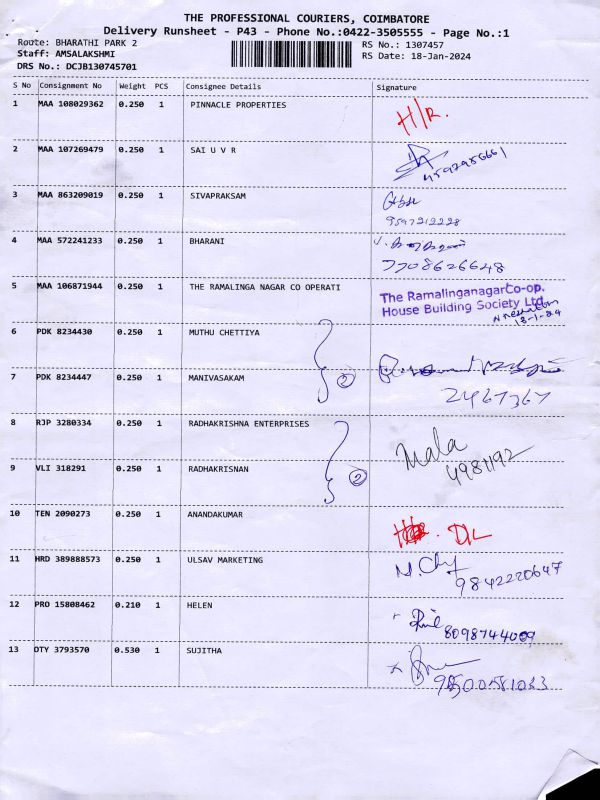 THE PROFESSIONAL COURIERS, COIMBATORE
Delivery Runsheet - P43 - Phone No.:0422-3505555 - Page No.:1
Route: BHARATHI PARK 2 RS No.: 1307457
Staff: AMSALAKSHMI RS Date: 18-Jan-2024
DRS No.: DCJB130745701
S No Consignment No Weight PCS Consignee Details Signature
1 MAA 108029362 0.250 1 PINNACLE PROPERTIES H/R.
2 MAA 107269479 0.250 1 SAI U V R
3 MAA 863209019 0.250 1 SIVAPRAKSAM
9597212228
4 MAA 572241233 0.250 1 BHARANI
7708626648
5 MAA 106871944 0.250 1 THE RAMALINGA NAGAR CO OPERATI The RamalinganagarCo-op.
House Building Society Ltd.
18-1-24
6 PDK 8234430 0.250 1 MUTHU CHETTIYA
7 PDK 8234447 0.250 1 MANIVASAKAM 2
2467367
8 RJP 3280334 0.250 1 RADHAKRISHNA ENTERPRISES Mala
4981192
9 VLI 318291 0.250 1 RADHAKRISNAN 2
10 TEN 2090273 0.250 1 ANANDAKUMAR DL
11 HRD 389888573 0.250 1 ULSAV MARKETING
9842220647
12 PRO 15808462 0.210 1 HELEN
8098744009
13 OTY 3793570 0.530 1 SUJITHA